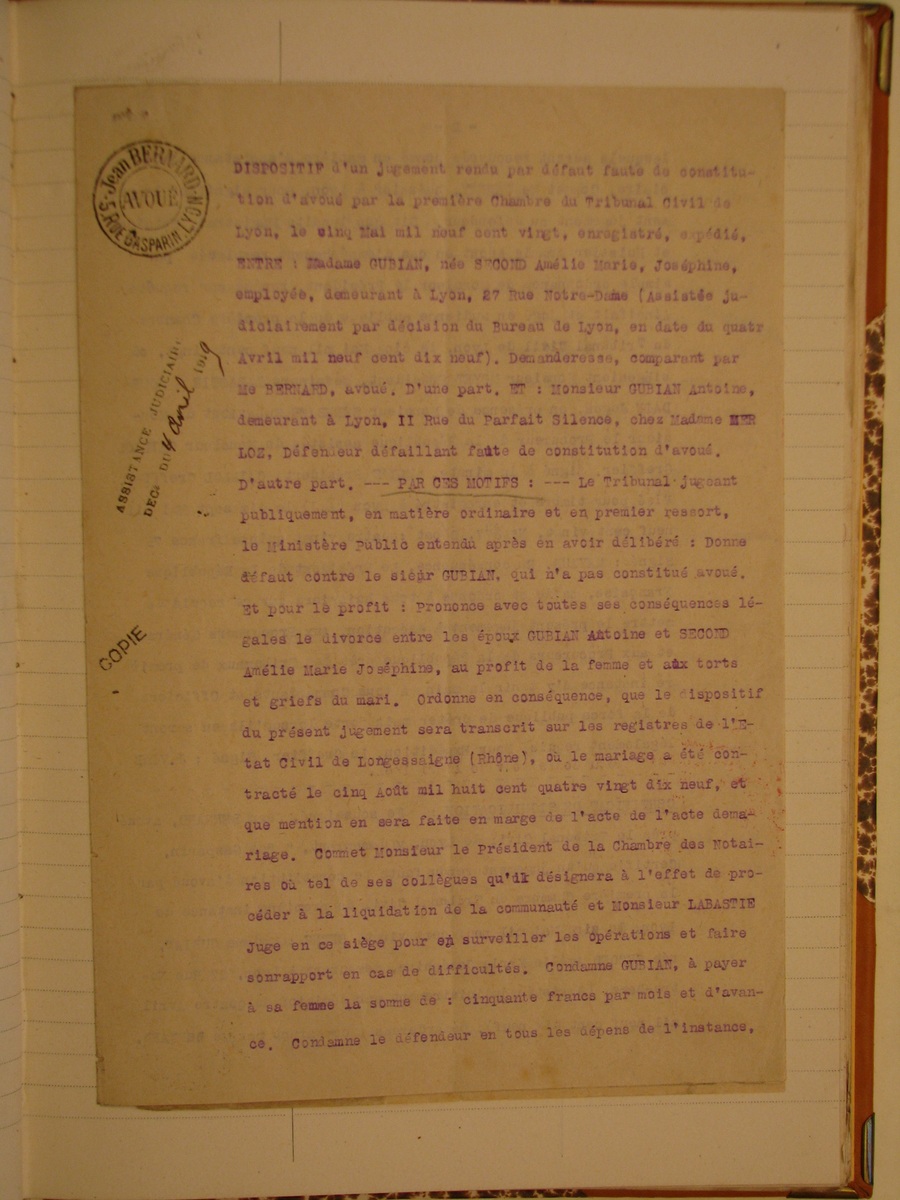 Jean BERNARD
AVOUÉ
5. RUE GASPARIN. LYON
DISPOSITIF d'un jugement rendu par défaut faute de constitu-
tion d'avoué par la première Chambre du Tribunal Civil de
Lyon, le cinq Mai mil neuf cent vingt, enregistré, expédié,
ENTRE : Madame GUBIAN, née SECOND Amélie Marie, Joséphine,
employée, demeurant à Lyon, 27 Rue Notre-Dame (Assistée ju-
diciairement par décision du Bureau de Lyon, en date du quatr
Avril mil neuf cent dix neuf). Demanderesse, comparant par
Me BERNARD, avoué. D'une part. ET : Monsieur GUBIAN Antoine,
demeurant à Lyon, II Rue du Parfait Silence, chez Madame MER
LOZ, Défendeur défaillant faute de constitution d'avoué.
D'autre part. --- PAR CES MOTIFS : --- Le Tribunal jugeant
publiquement, en matière ordinaire et en premier ressort,
le Ministère Public entendu après en avoir délibéré : Donne
défaut contre le sieur GUBIAN, qui n'a pas constitué avoué.
Et pour le profit : Prononce avec toutes ses conséquences lé-
gales le divorce entre les époux GUBIAN Antoine et SECOND
Amélie Marie Joséphine, au profit de la femme et aux torts
et griefs du mari. Ordonne en conséquence, que le dispositif
du présent jugement sera transcrit sur les registres de l'E-
tat Civil de Longessaigne (Rhône), où le mariage a été con-
tracté le cinq Août mil huit cent quatre vingt dix neuf, et
que mention en sera faite en marge de l'acte de l'acte dema-
riage. Commet Monsieur le Président de la Chambre des Notai-
res où tel de ses collègues qu'il désignera à l'effet de pro-
céder à la liquidation de la communauté et Monsieur LABASTIE
Juge en ce siège pour en surveiller les opérations et faire
sonrapport en cas de difficultés. Condamne GUBIAN, à payer
à sa femme la somme de : cinquante francs par mois et d'avan-
ce. Condamne le défendeur en tous les dépens de l'instance,
ASSISTANCE JUDICIAIRE
DEC. DU 4 avril 1919
COPIE